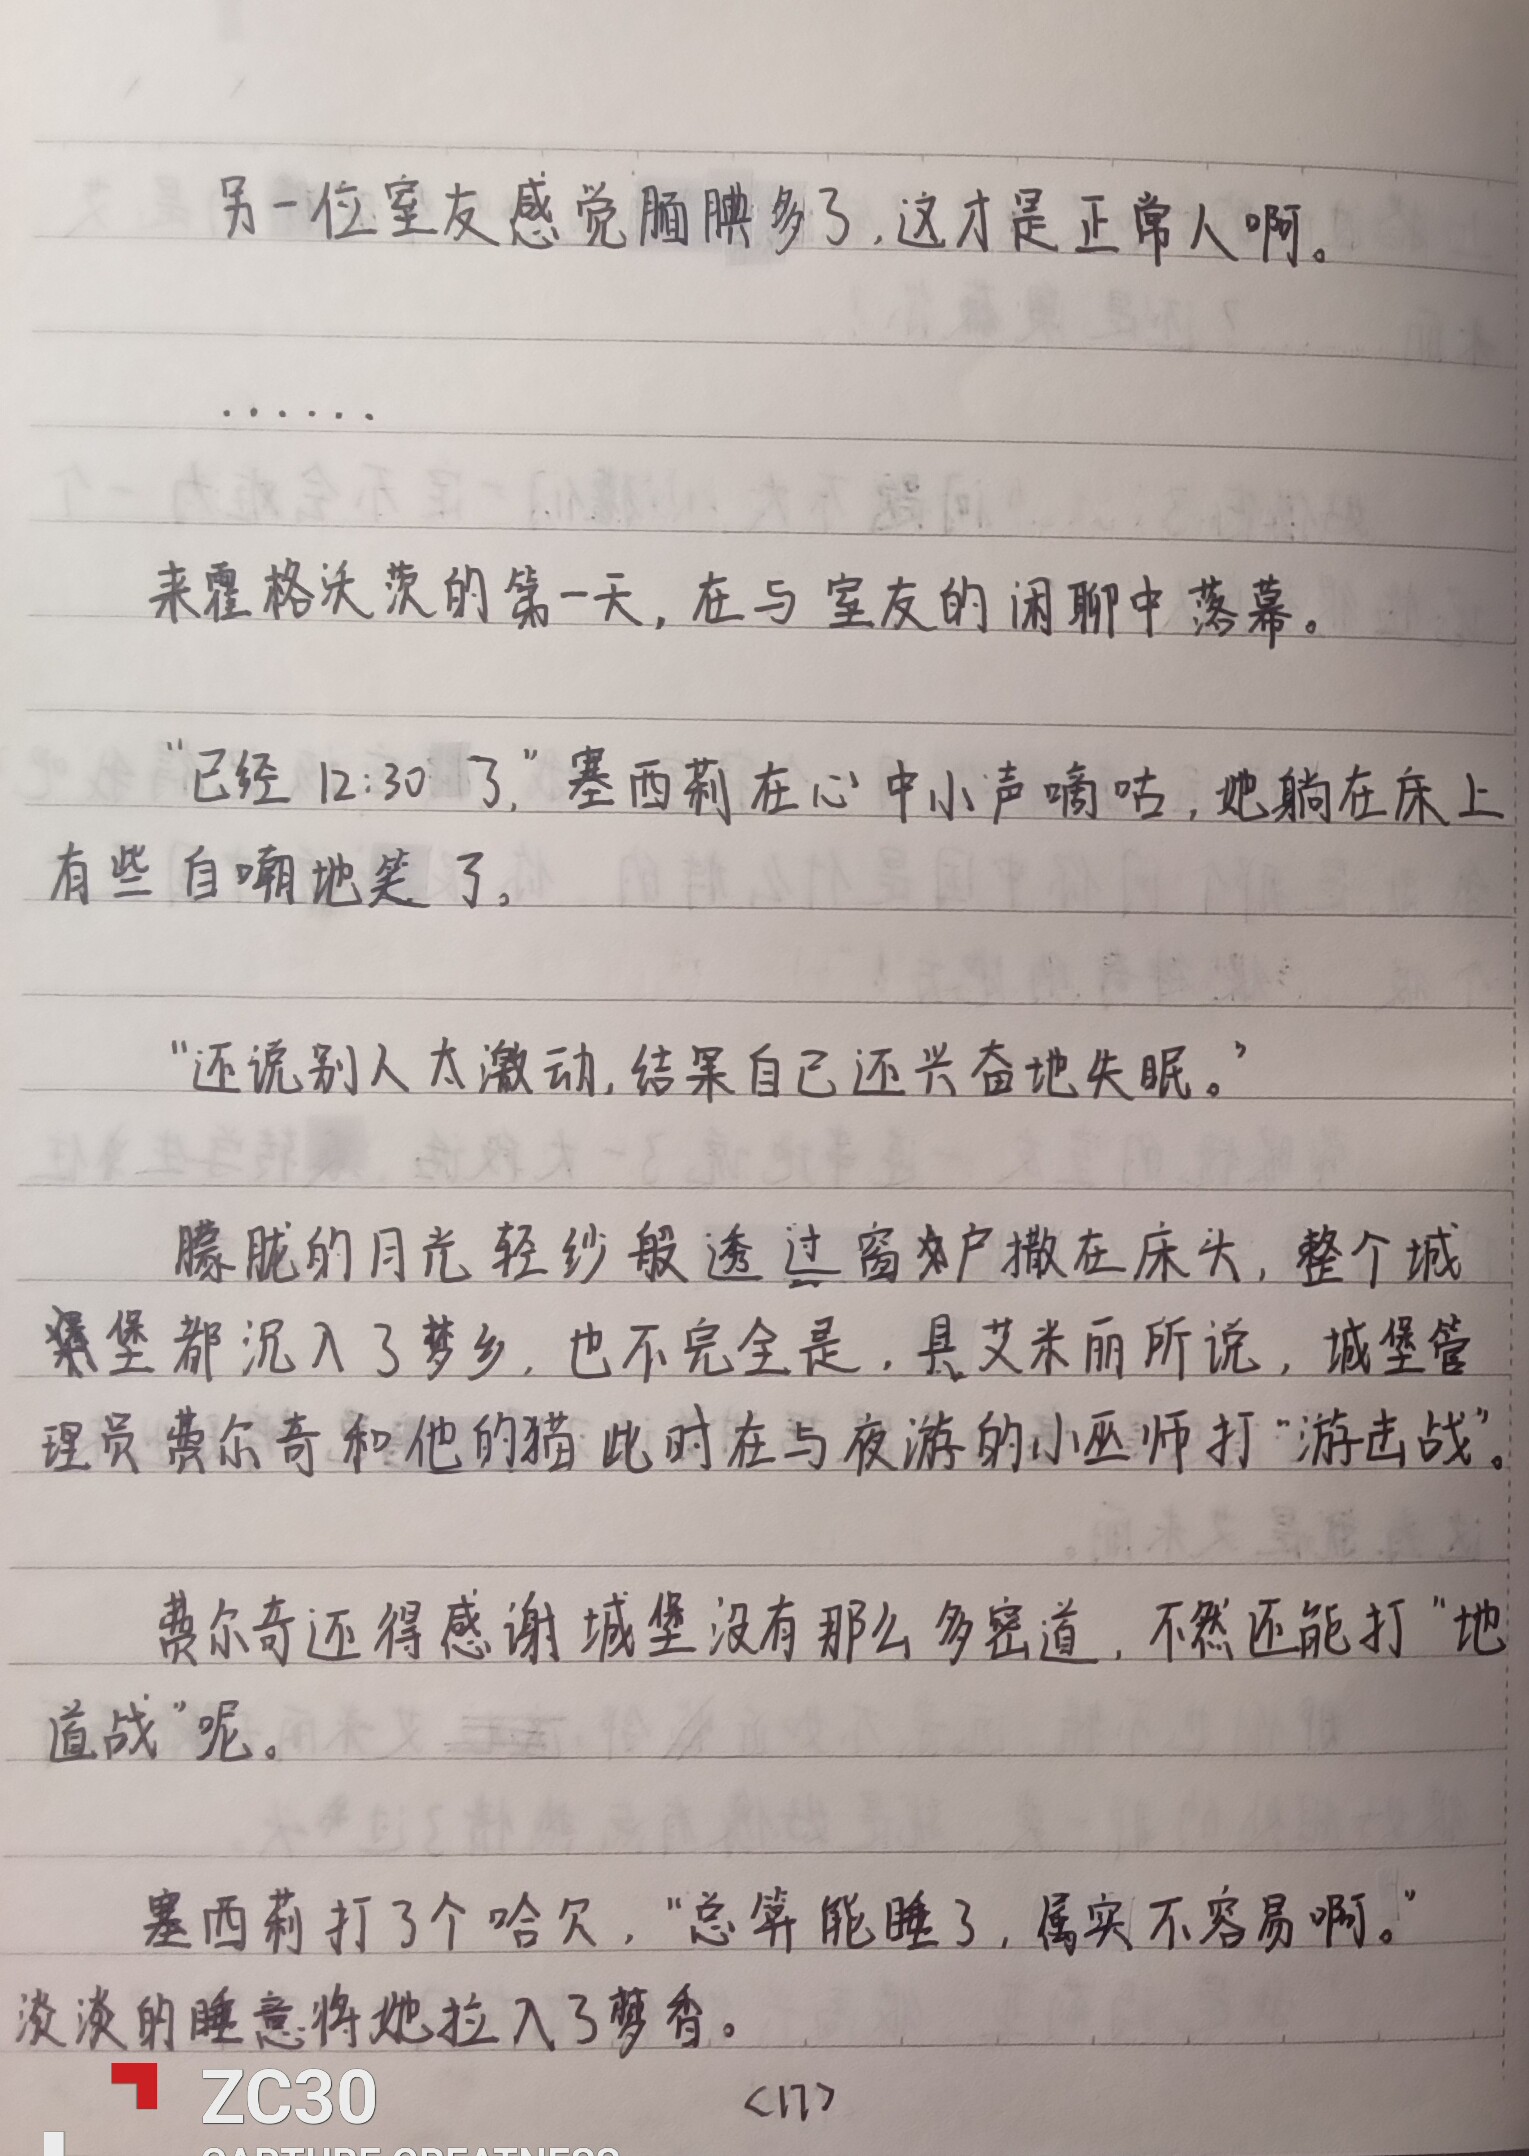 另一位室友感觉腼腆多了，这才是正常人啊。
......
来霍格沃茨的第一天，在与室友的闲聊中落幕。
“已经12:30了，”塞西莉在心中小声嘀咕，她躺在床上
有些自嘲地笑了。
“还说别人太激动，结果自己还兴奋地失眠。”
朦胧的月光轻纱般透过窗户撒在床头，整个城
堡都沉入了梦乡，也不完全是，具艾米丽所说，城堡管
理员费尔奇和他的猫此时在与夜游的小巫师打“游击战”。
费尔奇还得感谢城堡没有那么多密道，不然还能打“地
道战”呢。
塞西莉打了个哈欠，“总算能睡了，属实不容易啊。”
淡淡的睡意将她拉入了梦香。
<17>
ZC30